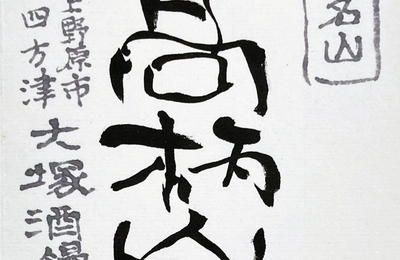 名山
高柄山
上野原市
四方津
大塚酒饅